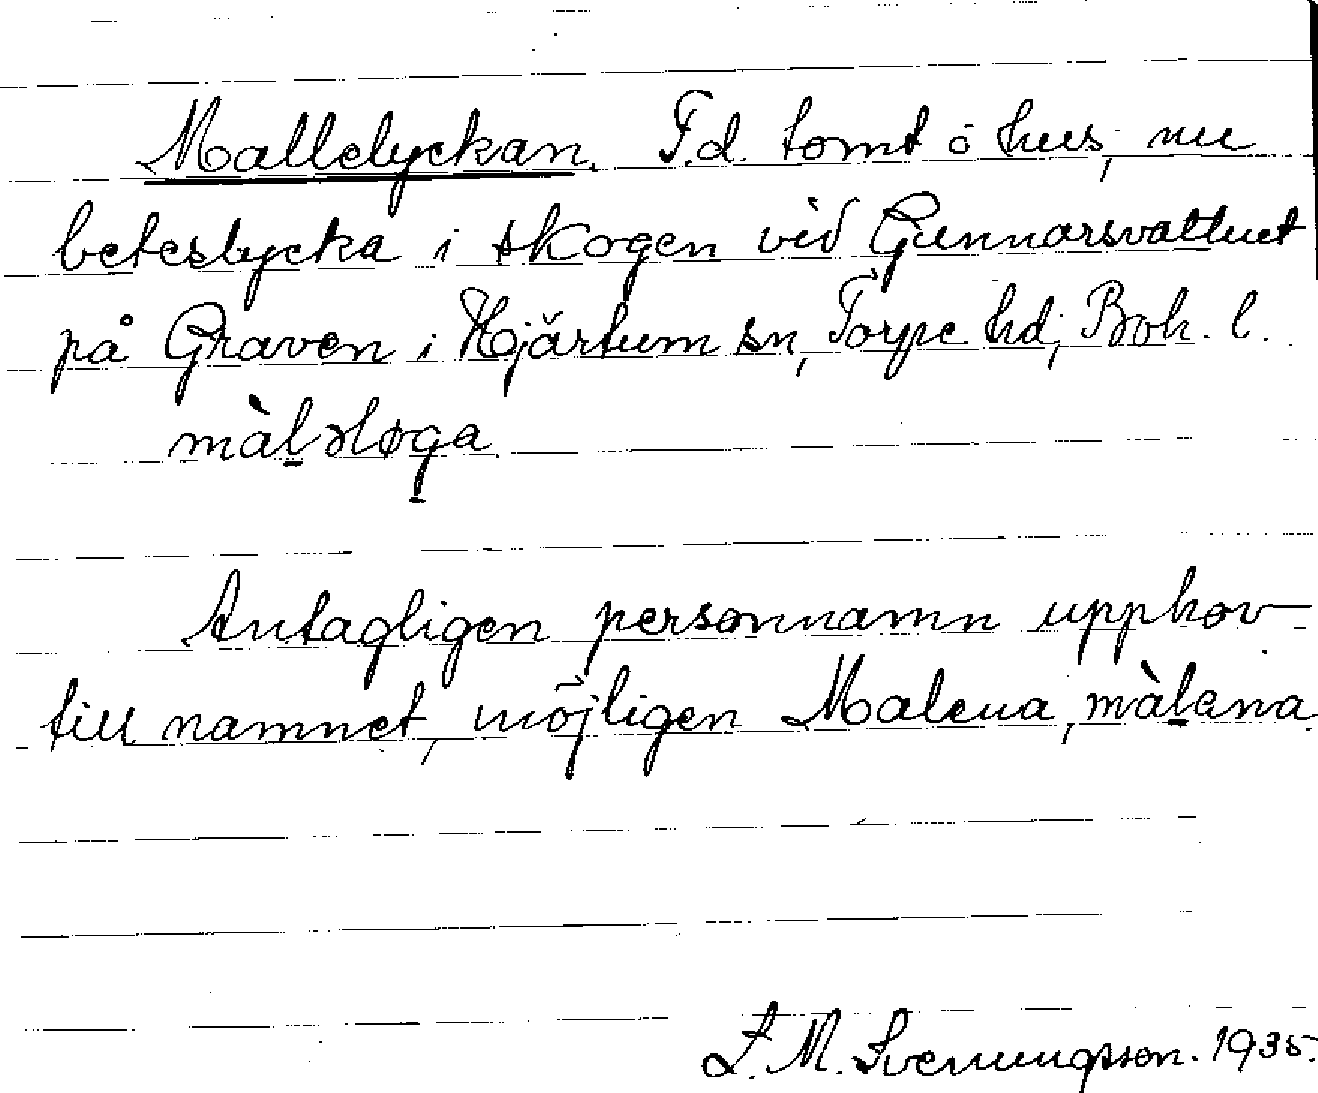 Mallelyckan. F.d. tomt o hus, nu
beteslycka i skogen vid Gunnarsvattnet
på Graven i Hjärtum sn, Torpe hd, Boh. l.
màləløga
Antagligen personnamn upphov
till namnet, möjligen Malena, màlena
L. M. Svenungsson. 1935.